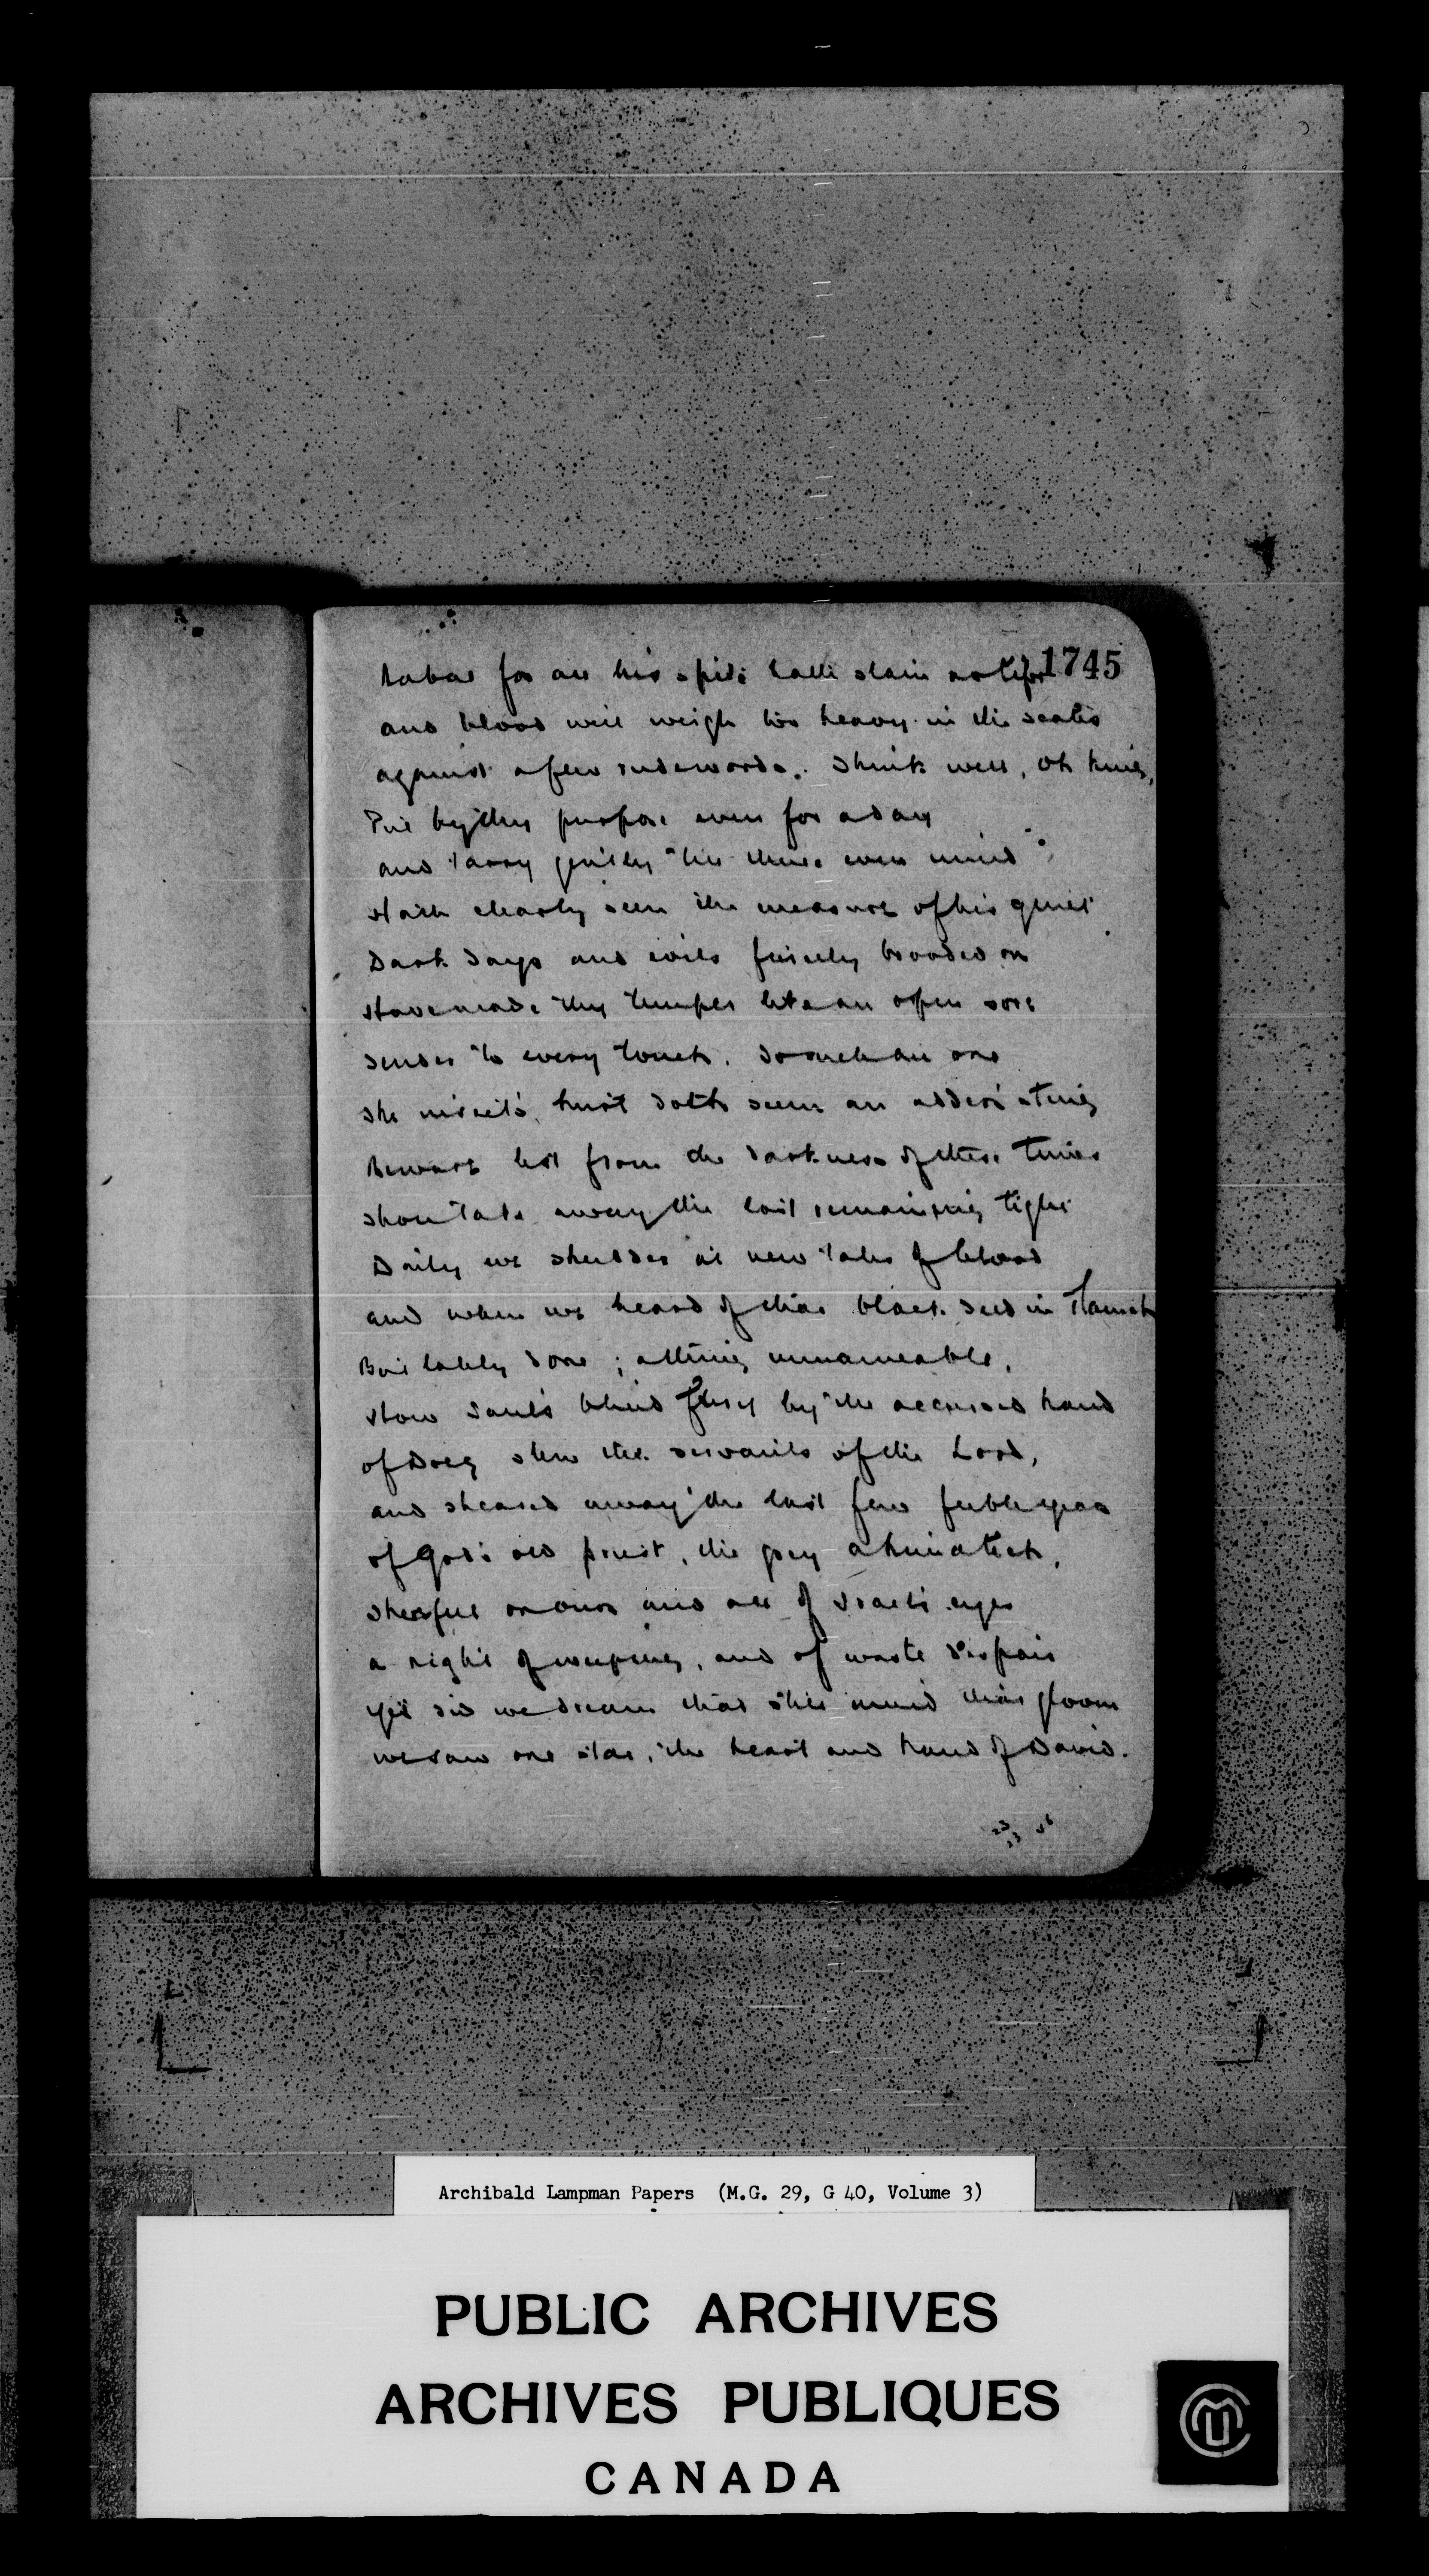 1745
Nabal for all his spite hath slain no life
and blood will weigh too heavy in the scales
against a few rude words. Think well, oh king,
Put by thy purpose even for a day
and tarry gently till thine even mind
Hath clearly seen the measure of his guilt
Dark days and evils fiercely brooded on
Have made thy temper like an open sore
Tender to every touch. To such an one
The insect's hurt doth seem an adder's sting
Beware lest from the darkness of these times
Thou take away the last remaining light
Daily we shudder at new tales of blood
and when we heard of that black deed in Ramah
But lately done; a thing unnameable,
How Saul's blind fury by the accursed hand
of Doeg slew the servants of the Lord,
and sheared away the last few feeble years
of God's old priest, the grey Ahimelech,
There fell on our and all of Israel's eyes
a night of weeping, and of waste despair
Yet did we dream that still amid that gloom
we saw one star, the heart and hand of David.
Archibald Lampman Papers (M.G. 29, G 40, Volume 3)
PUBLIC ARCHIVES
ARCHIVES PUBLIQUES
CANADA